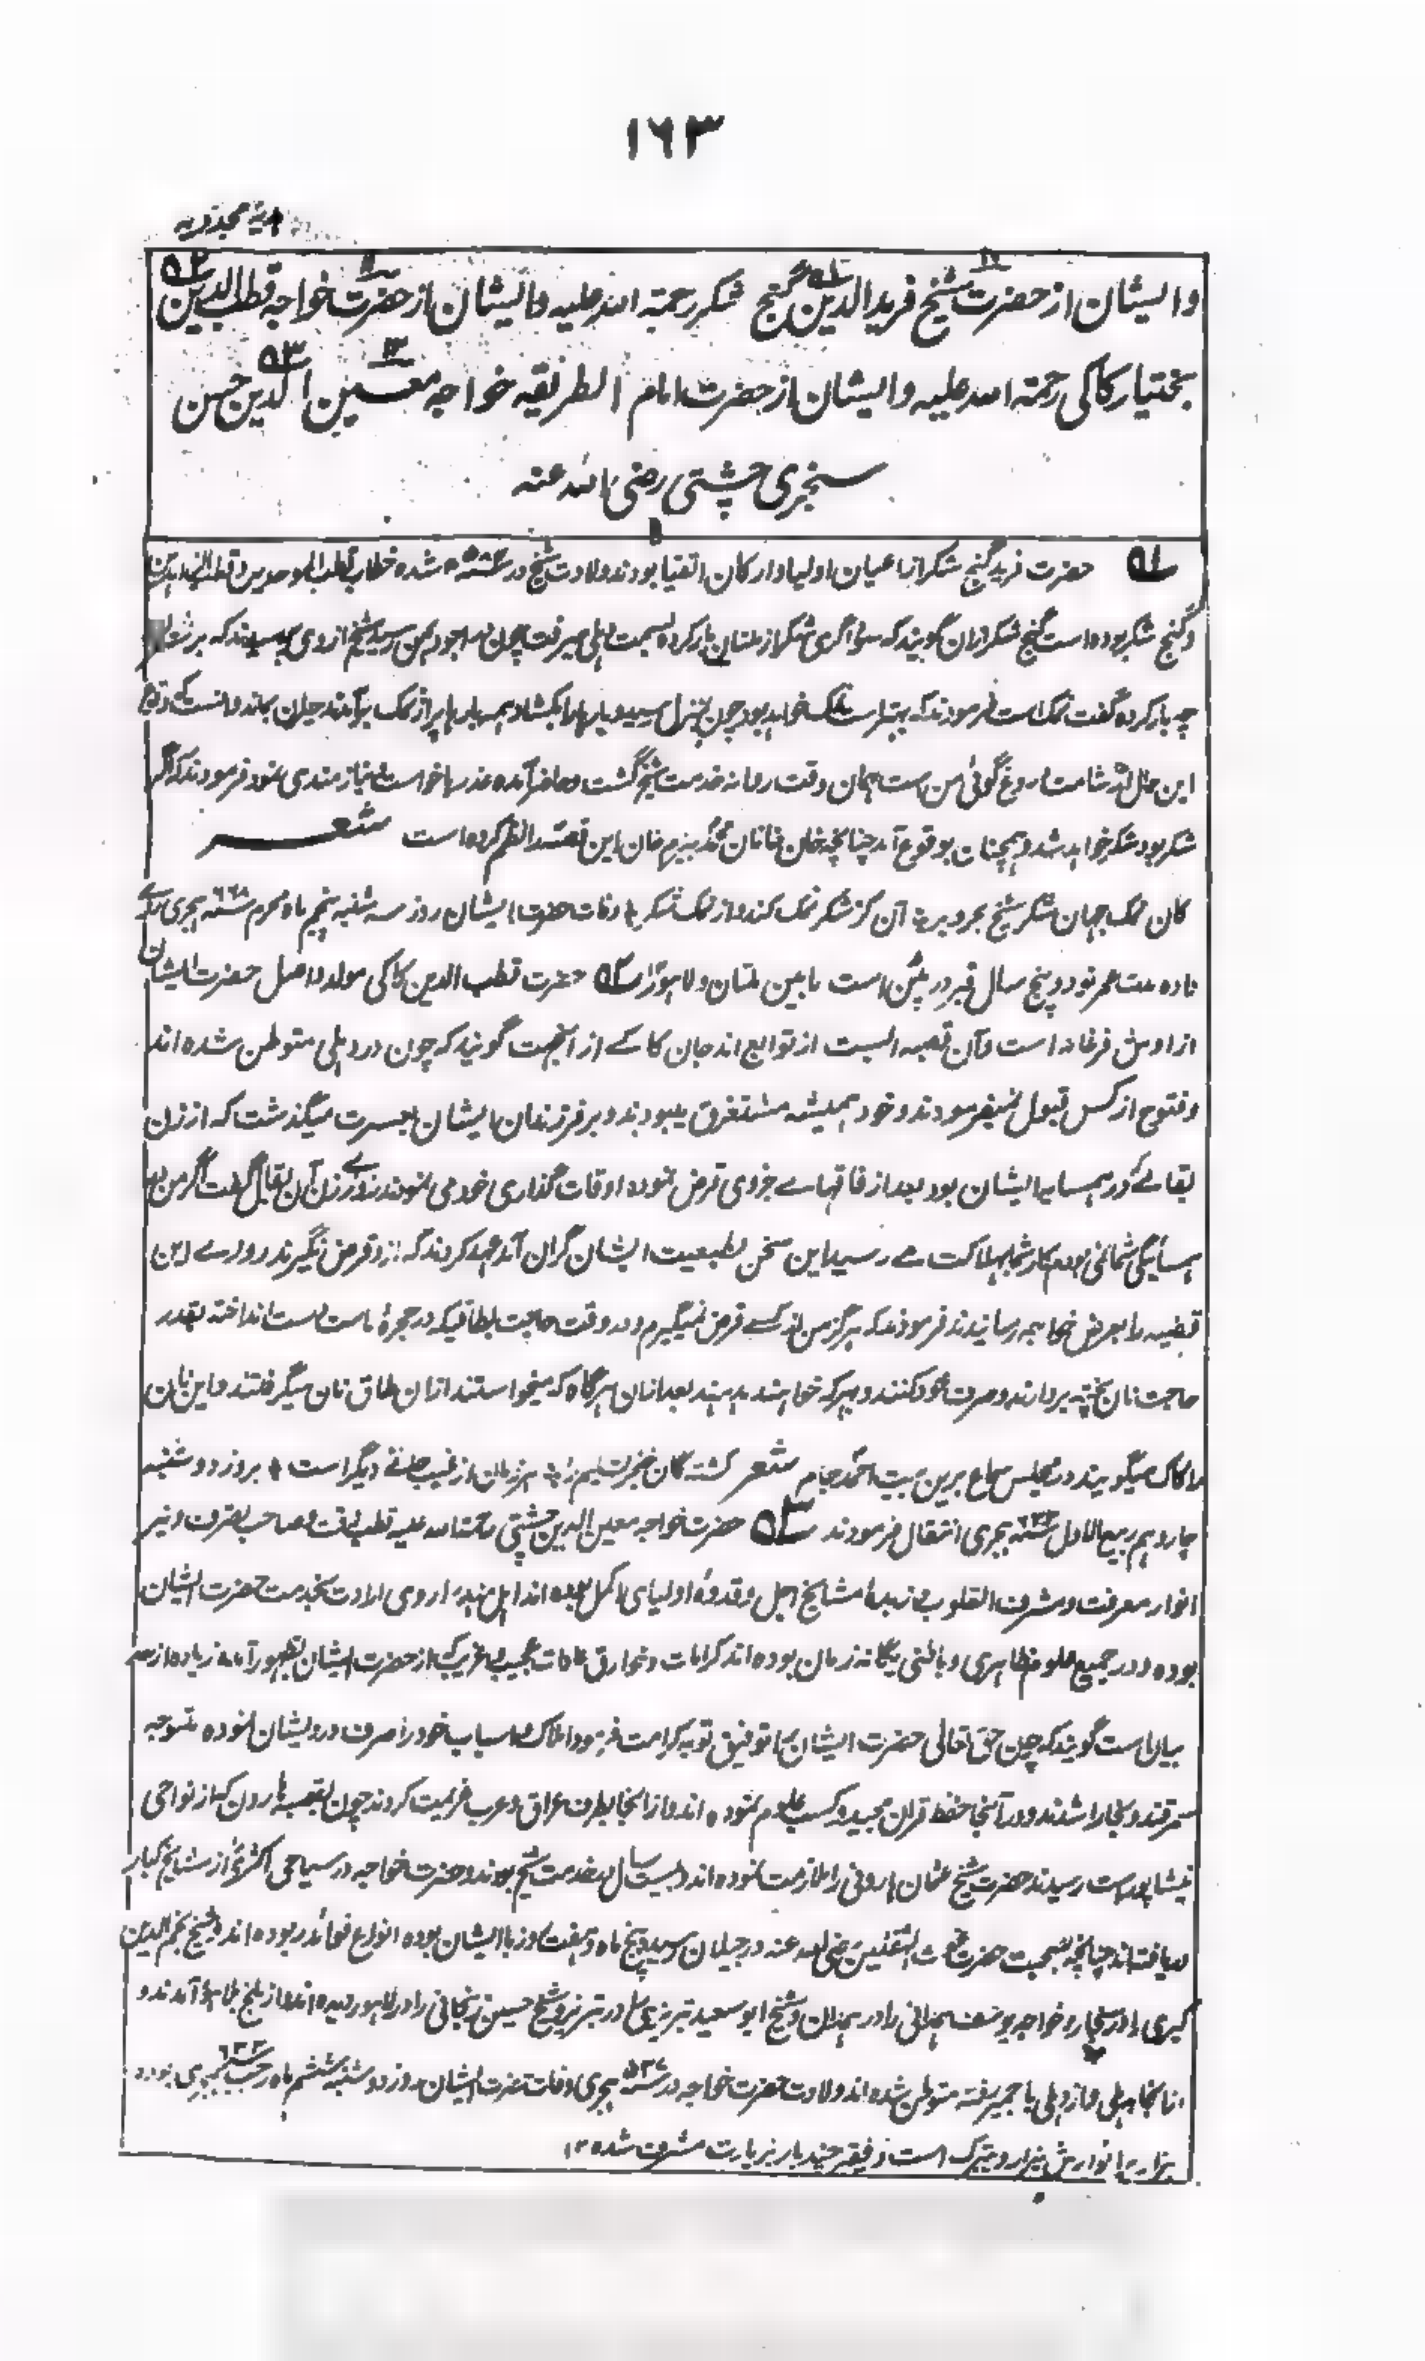 ۱۶۳
هدیه مجددیه
وایشان از حضرت شیخ فرید الدین گنج شکر رحمة الله علیه وایشان از حضرت خواجه قطب الدین
بختیار کاکی رحمة الله علیه وایشان از حضرت امام الطریقه خواجه معین الدین حسن
سنجری چشتی رضی الله عنه
۵۱ حضرت فرید گنج شکر از اعیان اولیا و ارکان اتقیا بودند ولادت شیخ در شده خطاب قطب الموحدین
و گنج شکر بوده است گنج شکر ازان گویند که سوداگری شکر از ملتان بار کرده بسمت دهلی میرفت چون به اجودهن رسید شیخ از وی پرسیدند که بر شتر
چه بار کرده گفت نمک است فرمودند که بهتر است نمک خواهد بود چون بمنزل رسید و بارها را بکشاد همه بارها پر از نمک برآمدند حیران بماند و دانست که
این حال از شامت دروغ گوئی من است همان وقت روانه خدمت شیخ گشت و حاضر آمده عذرها خواست و نیازمندی نمود فرمودند که اگر
شکر بود شکر خواهد شد و همچنان بوقوع آمد چنانچه خان خانان محمد بیرم خان این قصه را نظم کرده است شعر
کان نمک جهان شکر شیخ بحر و بر آن کز شکر نمک کند و از نمک شکر وفات حضرت ایشان روز سه شنبه پنجم ماه محرم ۶۶۸ هجری
مدت عمر نود و پنج سال قبر در پتن است مابین ملتان و لاهور ۵۲ حضرت قطب الدین کاکی مولد و اصل حضرت ایشان
از اوش فرغانه است و آن قصبه ایست از توابع اندجان کاکی از آنجهت گویند که چون در دهلی متوطن شده اند
و فتوح از کس قبول نمیفرمودند و خود همیشه مستغرق میبودند و بر فرزندان ایشان بعسرت میگذشت که از زن
بقالے که در همسایه ایشان بود بعد از فاقهاے جزوی قرض نموده اوقات گذاری خود می نمودند روزے زن آن بقال گفت اگر من به
همسایگی شما نمی بودم کار شما بهلاکت مے رسید این سخن بطبیعت ایشان گران آمد عهد کردند که ازو قرض نگیرند روزے این
قضیه را بعرض خواجه رسانیدند فرمودند که هرگز من از کسے قرض نمیگیرم و در وقت حاجت بطاقیکه در حجرۀ ماست دست انداخته بقدر
حاجت نان پخته بردارند و صرف خود کنند و بهر که خواهند بدهند بعد ازان هرگاه که میخواستند ازان طاق نان میگرفتند و این نان
را کاک میگویند در مجلس سماع برین بیت احمد جام شعر کشتگان خنجر تسلیم را هر زمان از غیب جانے دیگر است بروز دوشنبه
چاردهم ربیع الاول ۶۳۳ هجری انتقال فرمودند ۵۳ حضرت خواجه معین الدین چشتی رحمة الله علیه قطب وقت و صاحب تصرف و نیر
انوار معرفت و مشرف القلوب مشایخ اجل و قدوۀ اولیای اکمل بوده اند اهل هند را روی ارادت بخدمت حضرت ایشان
بوده و در جمیع علوم ظاهری و باطنی یگانه زمان بوده اند کرامات و خوارق عادات عجیب و غریب که از حضرت ایشان بظهور آمده زیاده از حد
بیان است گویند که چون حق تعالی حضرت ایشان را توفیق توبه کرامت فرمود املاک و اسباب خود را صرف درویشان نموده متوجه
سمرقند و بخارا شدند و در آنجا حفظ قرآن مجید و کسب علوم نموده اند و از انجا بطرف عراق و عرب عزیمت کردند چون بقصبه هارون که از نواحی
نیشاپور است رسیدند حضرت شیخ عثمان هارونی را ملازمت نموده اند و بیست سال بخدمت شیخ بودند و حضرت خواجه در سیاحی اکثری از مشایخ کبار
دریافته اند چنانچه بصحبت حضرت غوث الثقلین رضی الله عنه در جیلان رسیده پنج ماه و هفت روز با ایشان بوده انواع فوائد ربوده اند و شیخ نجم الدین
کبری را در سنجار و خواجه یوسف همدانی را در همدان و شیخ ابو سعید تبریزی را در تبریز و شیخ حسین زنجانی را در لاهور دیده اند و از بلخ بلاهور آمدند و
از انجا بدهلی و از دهلی با جمیر رفته متوطن شده اند ولادت حضرت خواجه در ۵۳۷ هجری وفات حضرت ایشان روز دوشنبه ششم ماه رجب ۶۳۳ هجری بوده
مزار پر انوارش یزار و یتبرک است و فقیر چند بار بزیارت مشرف شده ۱۲